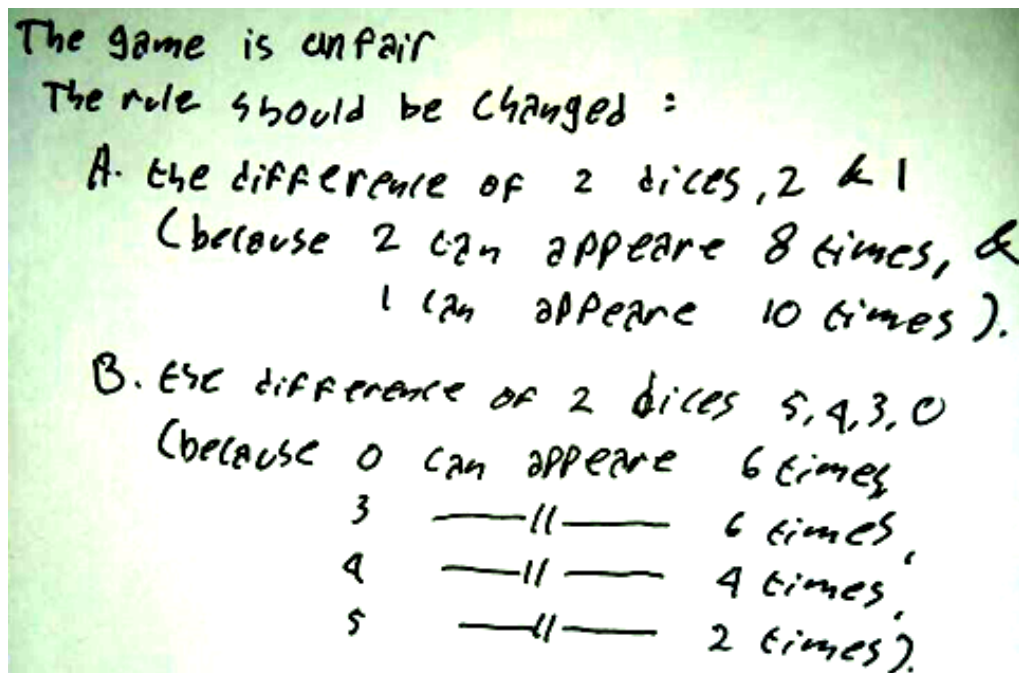 The game is unfair
The rule should be changed :
A. the difference of 2 dices, 2 & 1
(because 2 can appeare 8 times, &
1 can appeare 10 times).
B. the difference of 2 dices 5,4,3,0
(because 0 can appeare 6 times,
3 —〃— 6 times,
4 —〃— 4 times,
5 —〃— 2 times).